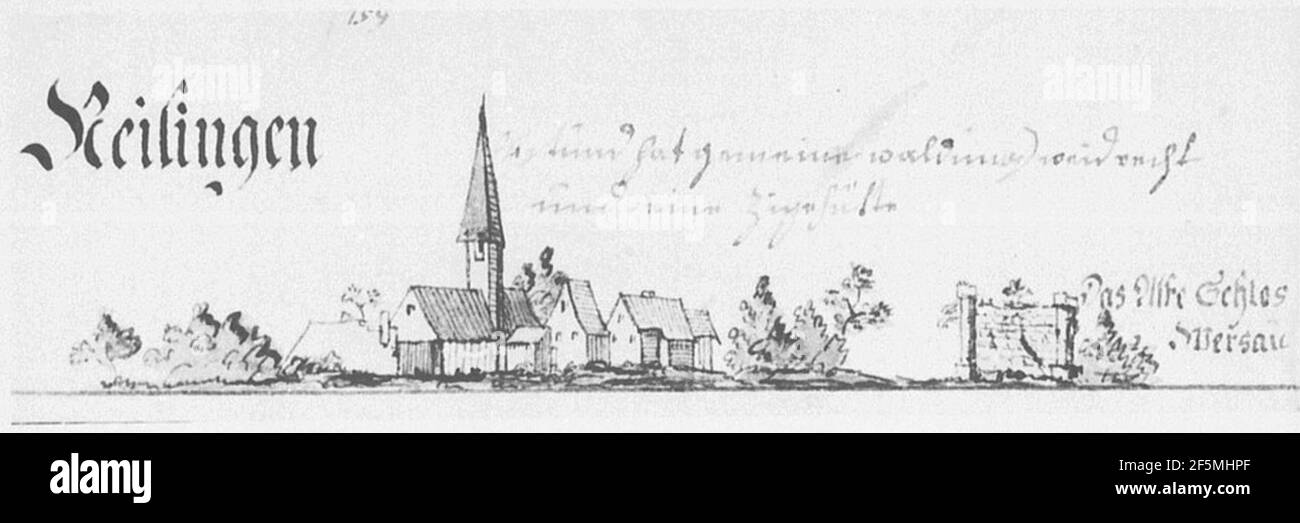 154
Reilingen
und hat gemeine waldung weidrecht
und eine
Das Alte Schlos
Wersau
alamy
alamy
alamy
Image ID: 2F5MHPF
www.alamy.com